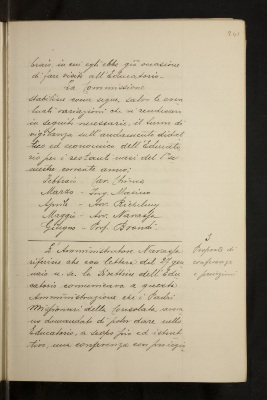 241
braio, in cui egli ebbe già occasione
di fare visite all'Educatorio.
La Commissione
stabilisce come segue, salvo le even
tuali variazioni che si rendessero
in seguito necessarie, il turno di
vigilanza sull'andamento didat
tico ed economico dell'Educato
rio per i restanti mesi del 1° se
mestre corrente anno:
Febbraio Cav.
Marzo - Ing. Marino
Aprile - Avv.
Maggio - Avv. Navassa
Giugno - Prof. Brondi.
L'Amministratore Navassa
riferisce che con lettera del 27 gen
naio u. s. la Direttrice dell'Edu
catorio comunicava a questa
Amministrazione che i Padri
Missionari della Consolata aveva
no domandato di poter dare nello
Educatorio, a scopo pio ed istrut
tivo, una conferenza con proiezio
3
Proposta di
conferenza
e proiezioni